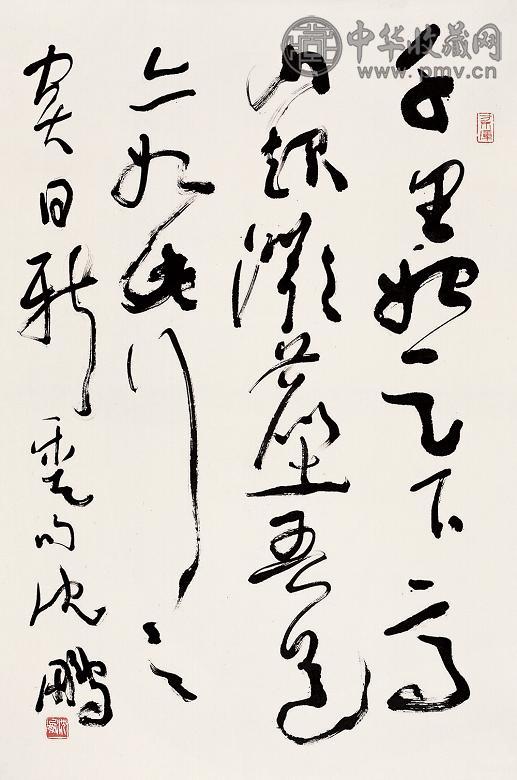 中华收藏网
www.pmv.cn
千里始足下高
山起微塵吾道
亦如此行之
貴日新 句沈鵬